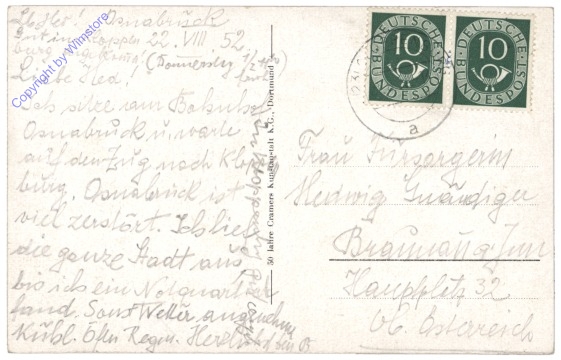 Osnabrück
22. VIII 52.
Liebe Hed!
Ich sitze am Bahnhof
Osnabrück u. warte
auf den Zug nach Klop
burg. Osnabrück ist
viel zerstört. Ich lief
die ganze Stadt aus
bis ich ein Notquartier
fand. Sonst Wetter angenehm
kühl. Öfter Regen.
50 Jahre Cramers Kunstanstalt K.G., Dortmund
DEUTSCHE BUNDESPOST
10
DEUTSCHE BUNDESPOST
10
a
Frau Fürsorgerin
Hedwig
Braunau a/Inn
Hauptplatz 32
Ob. Österreich
Copyright by Wimstore